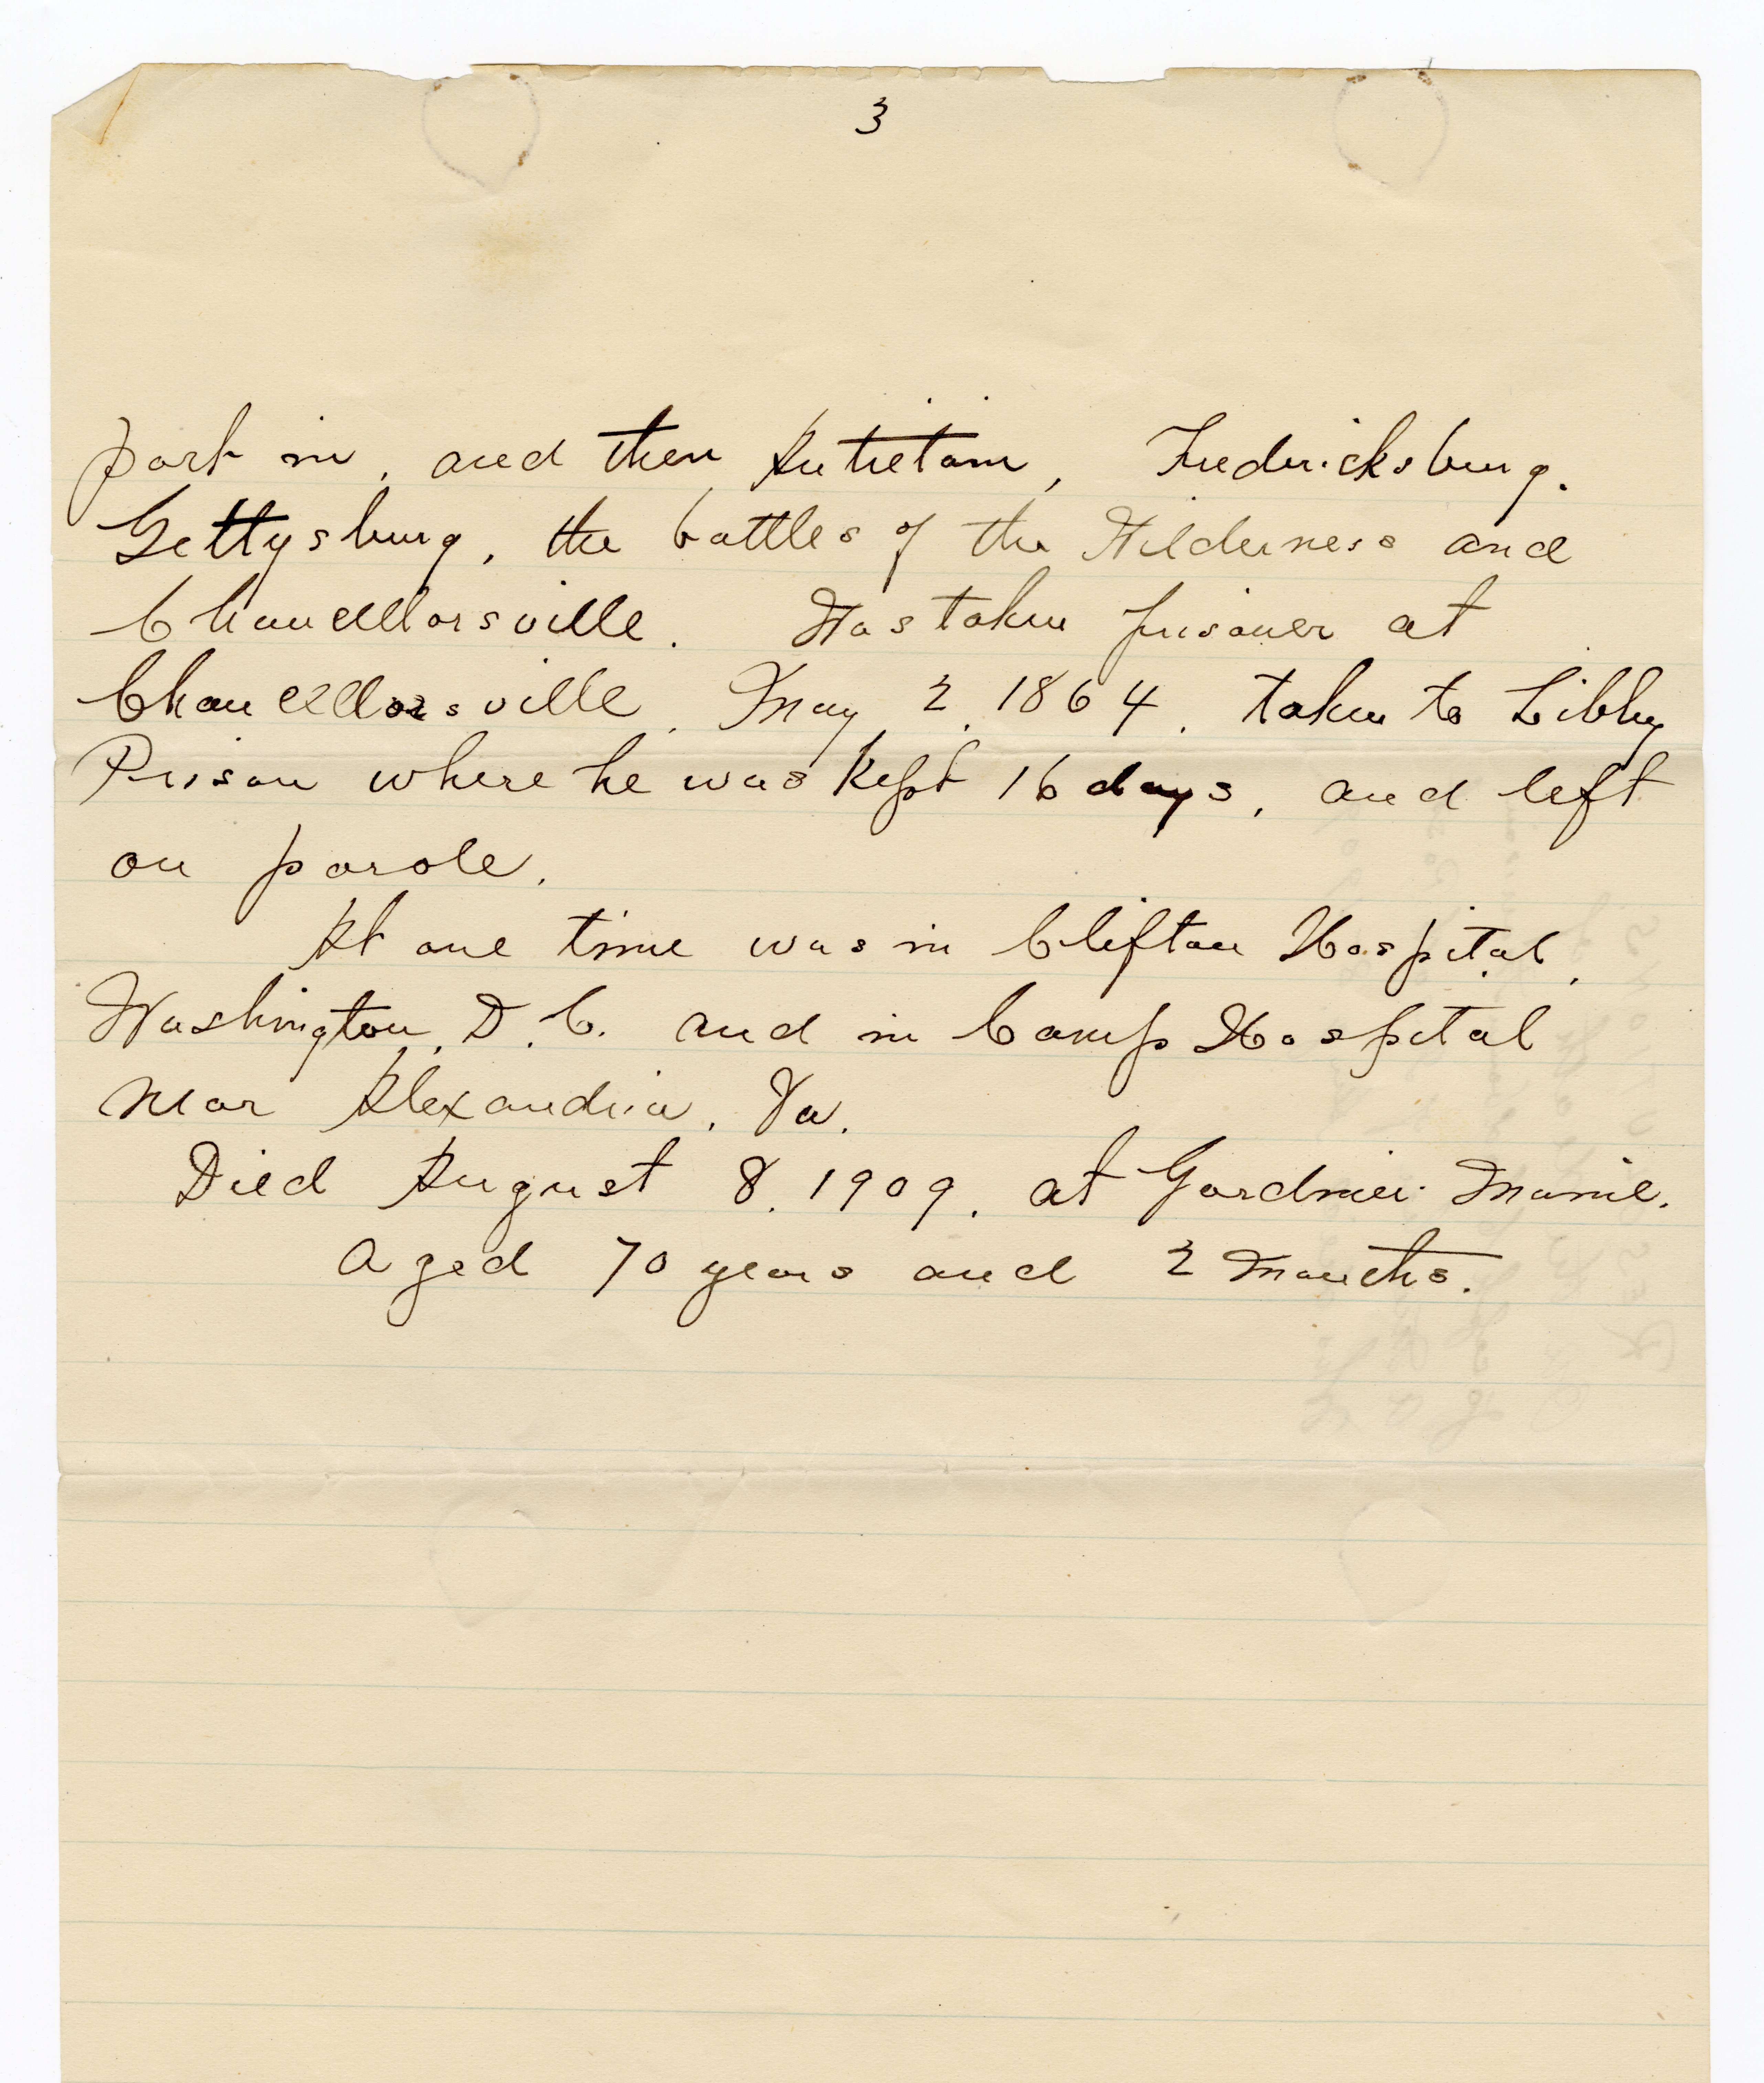 3
part in, and then Antietam, Fredericksburg.
Gettysburg, the battles of the Wilderness and
Chancellorsville. Was taken prisoner at
Chancellorsville, May 2, 1864, taken to Libby
Prison where he was kept 16 days, and left
on parole.
At one time was in Clifton Hospital,
Washington, D.C. and in Camp Hospital
near Alexandria, Va.
Died August 8, 1909, at Gardiner Maine.
Aged 70 years and 2 months.